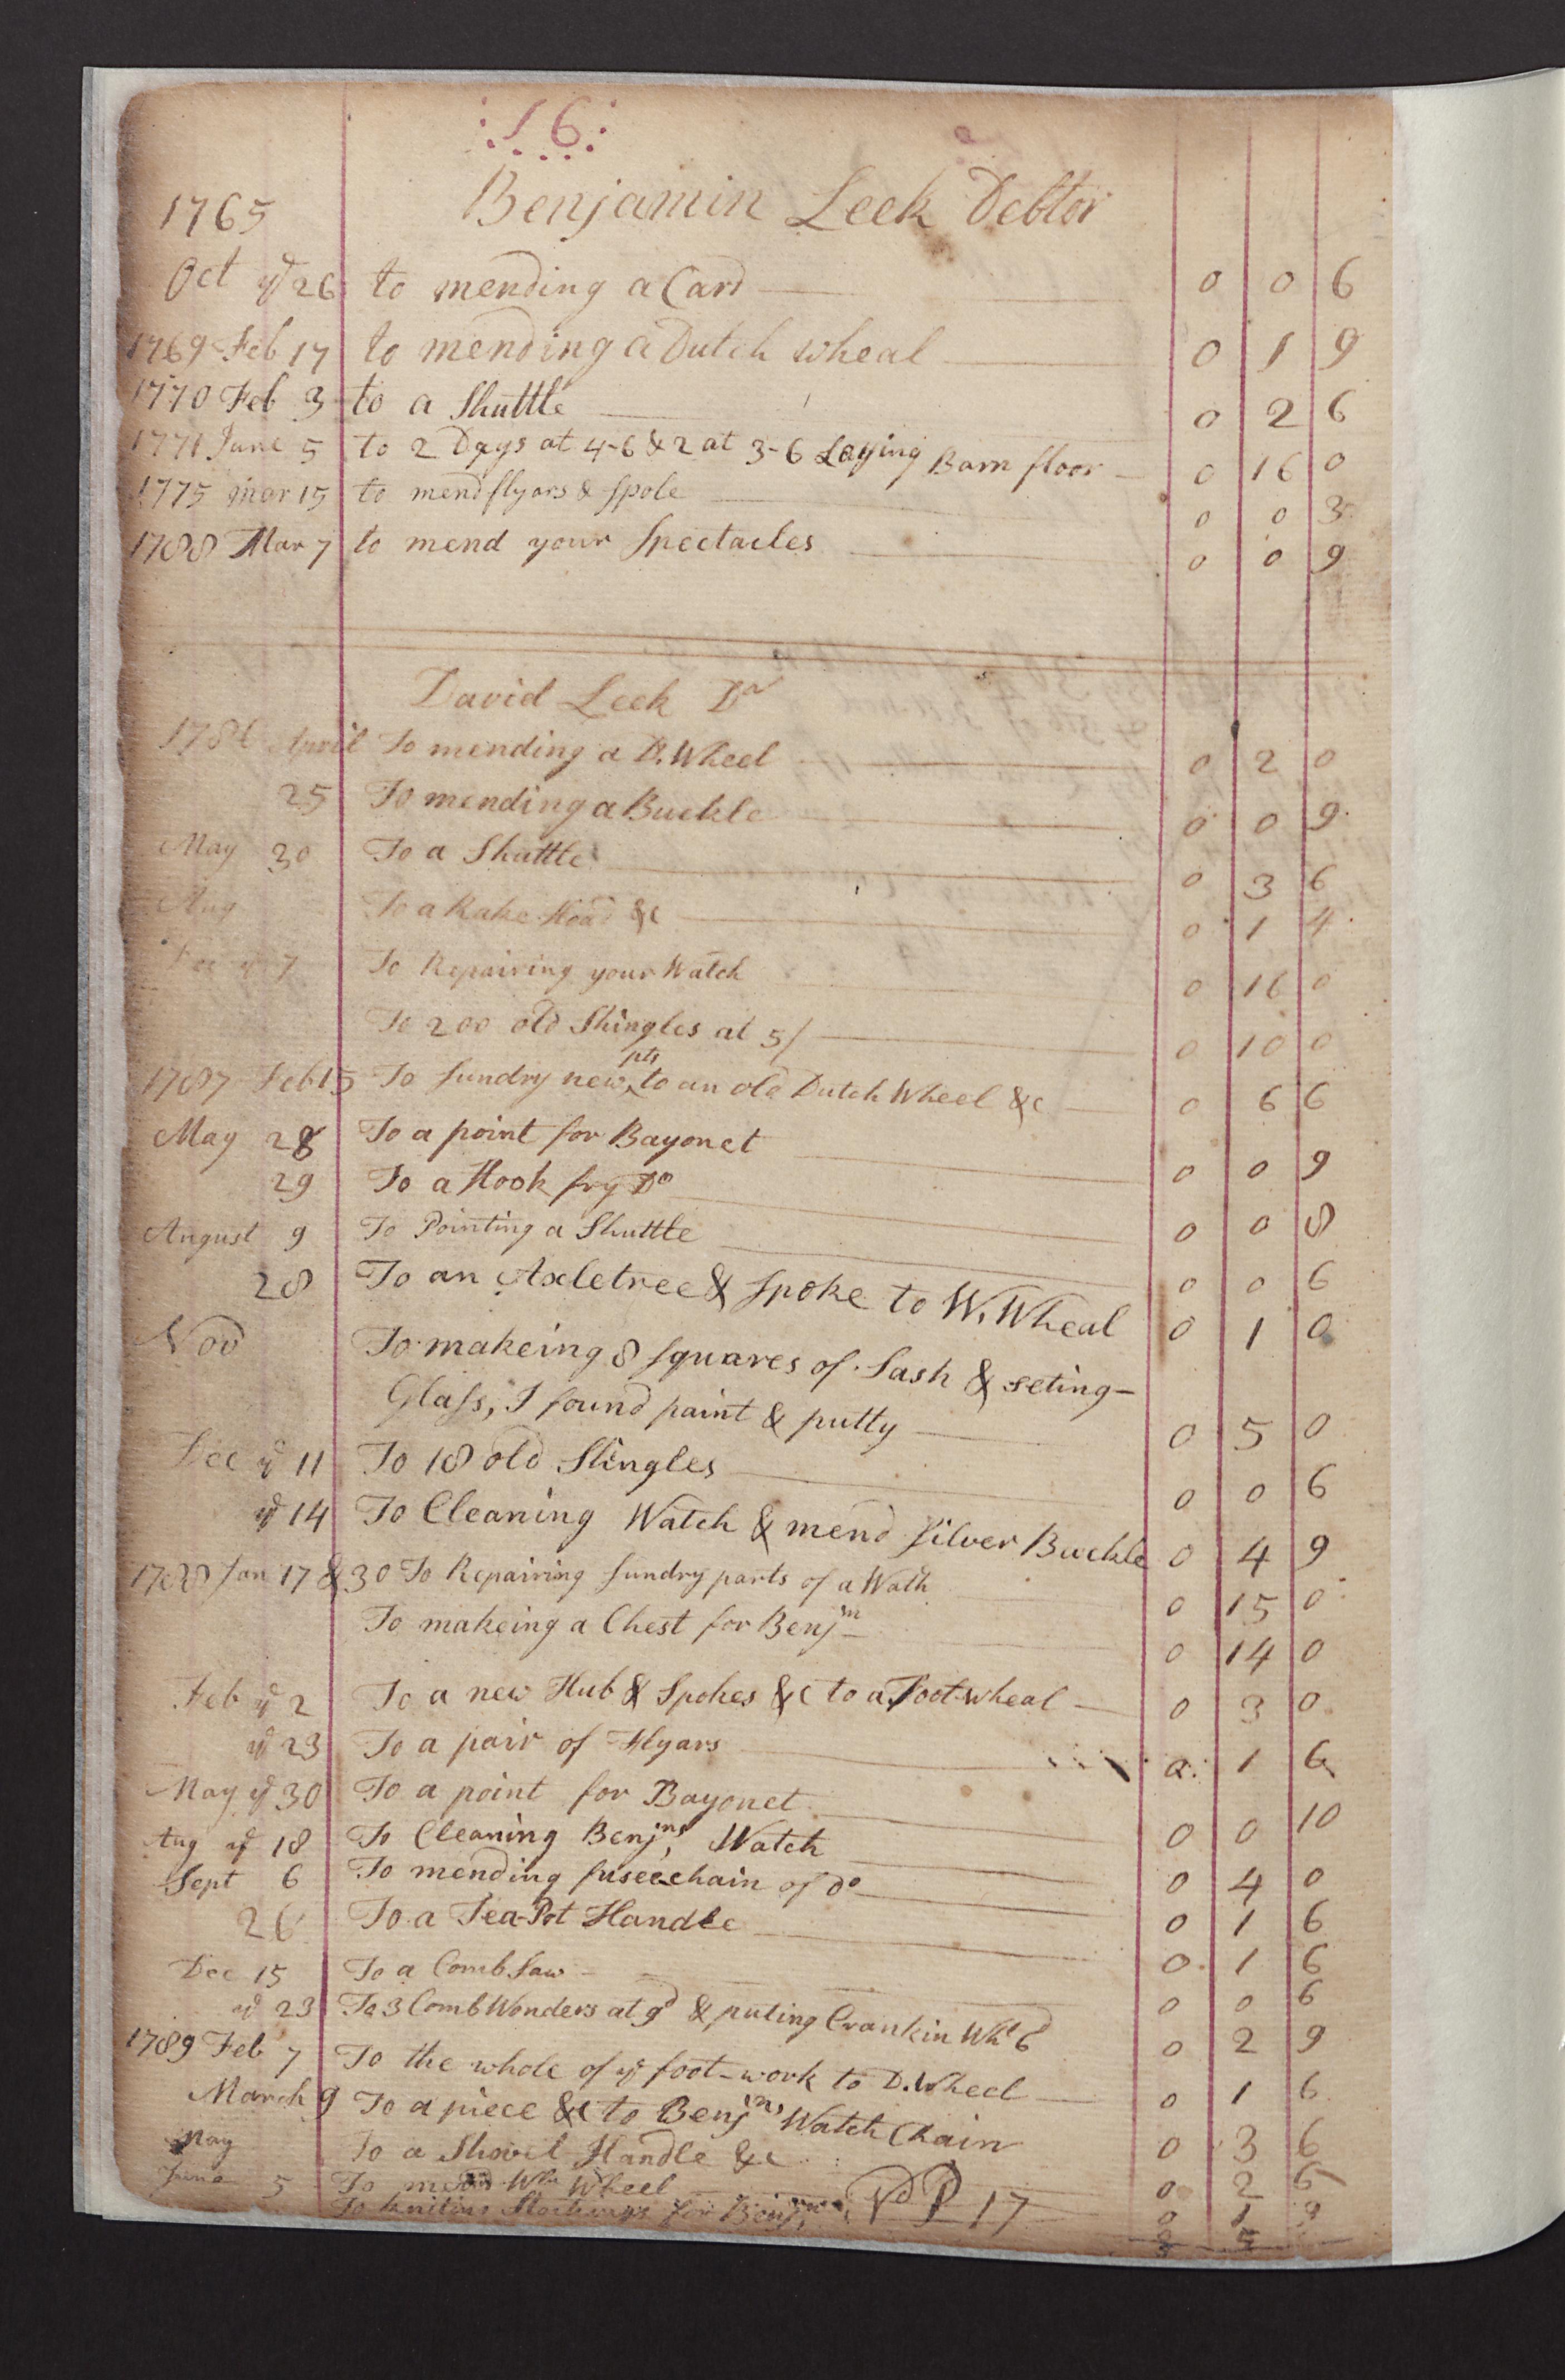 :16:
1765 Benjamin Leek Debtor
Oct ye 26 to mending a Card 0 0 6
1769 Feb 17 to mending a Dutch wheal 0 1 9
1770 Feb 3 to a Shuttle 0 2 6
1771 June 5 to 2 Days at 4-6 & 2 at 3-6 Laying Barn floor 0 16 0
1775 mar 15 to mend flyars & spole 0 0 3
1788 Mar 7 to mend your Spectacles 0 0 9
David Leek Dr
1786 April To mending a D. Wheel 0 2 0
25 To mending a Buckle 0 0 9
May 30 To a Shuttle 0 3 6
Aug To a Rake Head &c 0 1 4
Dec ye 7 To Repairing your Watch 0 16 0
To 200 old Shingles at 5/ 0 10 0
1787 Feb 15 To sundry new pts to an old Dutch Wheel &c 0 6 6
May 28 To a point for Bayonet 0 0 9
29 To a Hook for Do 0 0 8
August 9 To Pointing a Shuttle 0 0 6
28 To an Axletree & spoke to W. Wheal 0 1 0
Nov To makeing 8 squares of Sash & seting-
Glass, I found paint & putty 0 5 0
Dec ye 11 To 18 old Shingles 0 0 6
ye 14 To Cleaning Watch & mend Silver Buckle 0 4 9
1788 Jan 17 & 30 To Repairing sundry parts of a Wath 0 15 0
To makeing a Chest for Benjm 0 14 0
Feb ye 2 To a new Hub & Spokes &c to a Foot-wheal 0 3 0
ye 23 To a pair of Flyars 0 1 6
May ye 30 To a point for Bayonet 0 0 10
Aug ye 18 To Cleaning Benjms, Watch 0 4 0
Sept 6 To mending fusee chain of do 0 1 6
26 To a Tea-Pot Handle 0 1 6
Dec 15 To a Comb Saw 0 0 6
ye 23 To 3 Comb Wonders at 9d & puting Crank in Whl 6d 0 2 9
1789 Feb 7 To the whole of ye foot-work to D. Wheel 0 1 6
March 9 To a piece &c to Benjms Watch Chain 0 3 6
May To a Shovel Handle &c 0 2 6
June 5 To mend Wheel 0 1 9
To kniting Stockings for Benjmn Vd P 17